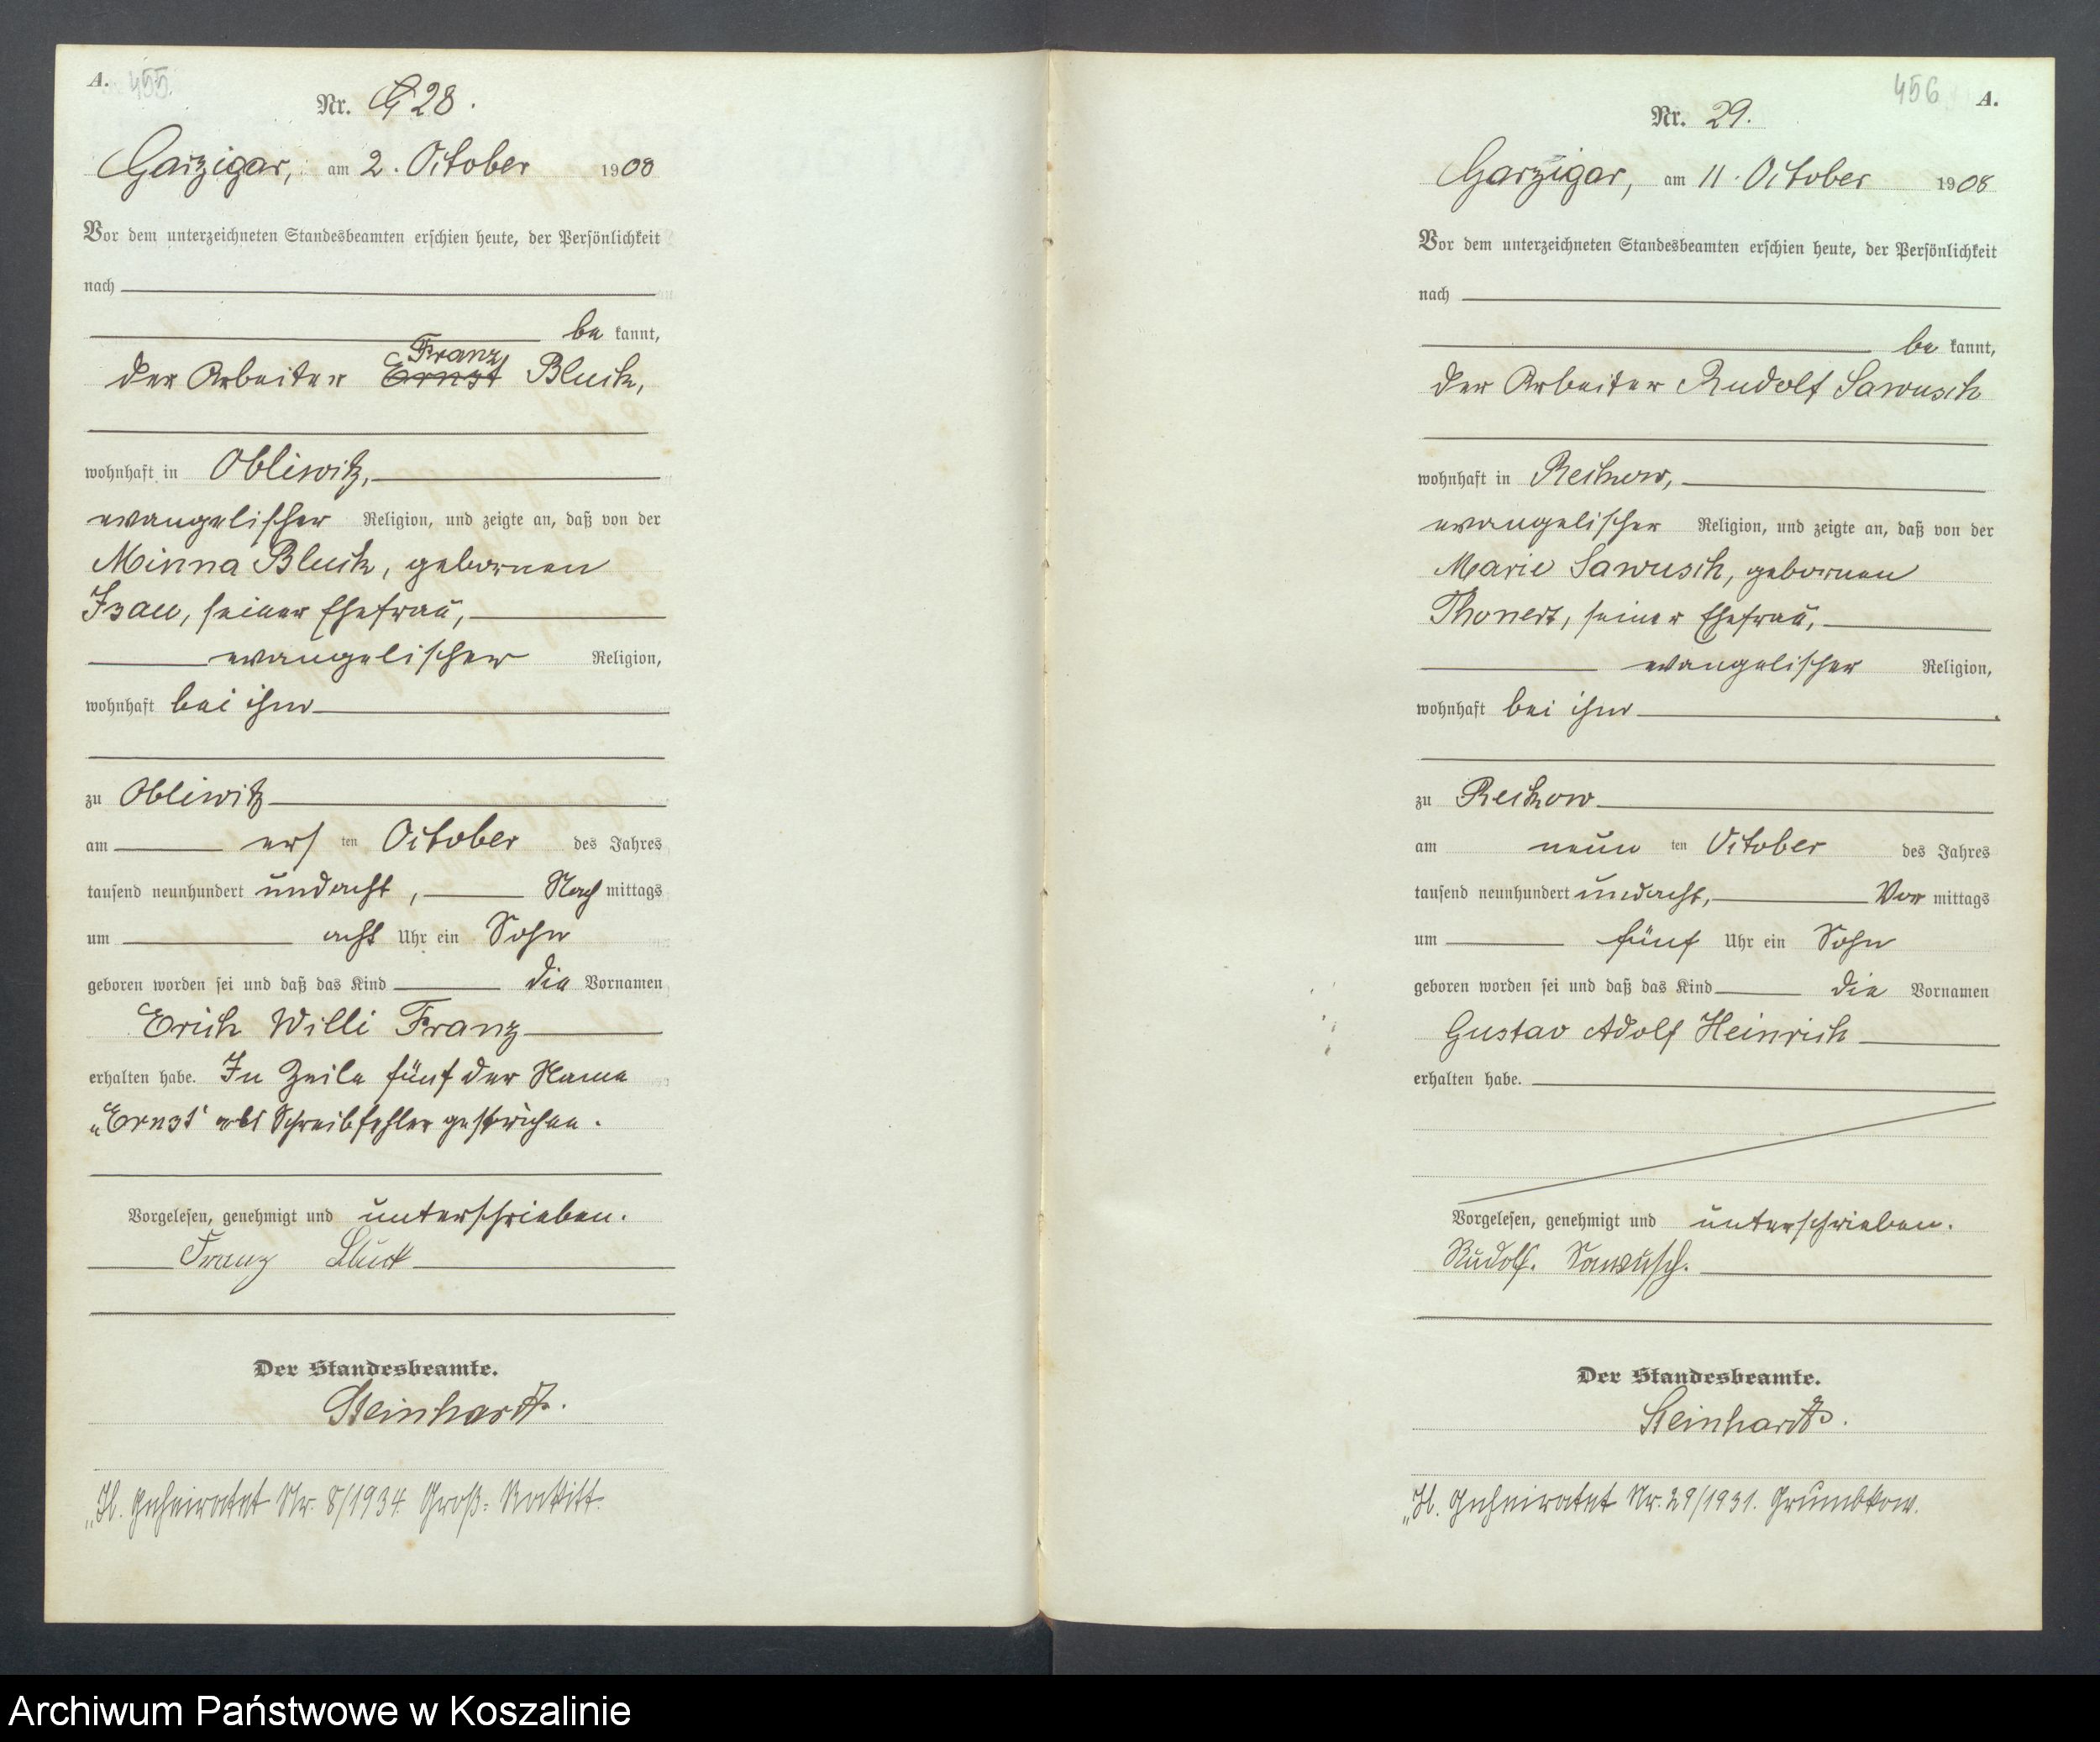 A. 455.
Nr. 28.
Garzigar, am 2. October 1908
Vor dem unterzeichneten Standesbeamten erschien heute, der Persönlichkeit
nach
be kannt,
Franz
der Arbeiter Ernst Bluck,
wohnhaft in Obliwitz,
evangelischer Religion, und zeigte an, daß von der
Minna Bluck, gebornen
seiner Ehefrau,
evangelischer Religion,
wohnhaft bei ihm
zu Obliwitz
am ers ten October des Jahres
tausend neunhundert undacht, Nach mittags
um acht Uhr ein Sohn
geboren worden sei und daß das Kind die Vornamen
Erich Willi Franz
erhalten habe. In Zeile fünf der Name
„Ernst" als Schreibfehler gestrichen.
Vorgelesen, genehmigt und unterschrieben.
Franz Bluck
Der Standesbeamte.
Steinhardt.
geheiratet Nr. 8/1934 Groß-
456 A.
Nr. 29.
Garzigar, am 11. October 1908
Vor dem unterzeichneten Standesbeamten erschien heute, der Persönlichkeit
nach
be kannt,
der Arbeiter Rudolf Sawusch
wohnhaft in Reckow,
evangelischer Religion, und zeigte an, daß von der
Marie Sawusch, gebornen
Thonert, seiner Ehefrau,
evangelischer Religion,
wohnhaft bei ihm
zu Reckow
am neun ten October des Jahres
tausend neunhundert undacht, Vor mittags
um fünf Uhr ein Sohn
geboren worden sei und daß das Kind die Vornamen
Gustav Adolf Heinrich
erhalten habe.
Vorgelesen, genehmigt und unterschrieben.
Rudolf. Sawusch.
Der Standesbeamte.
Steinhardt.
geheiratet Nr. 29/1931. Grumbkow.
Archiwum Państwowe w Koszalinie